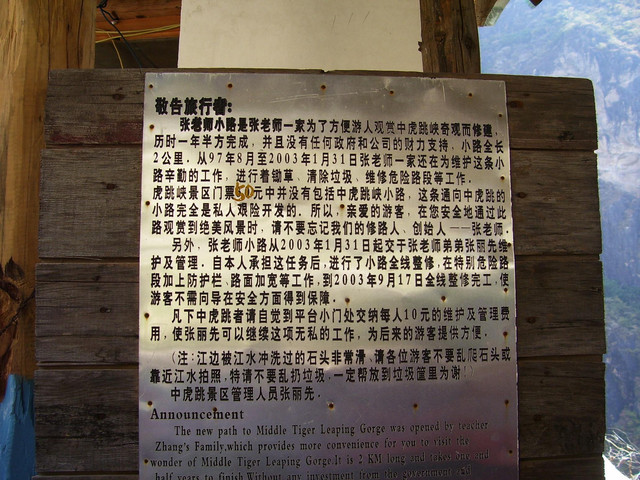 敬告旅行者:
张老师小路是张老师一家为了方便游人观赏中虎跳峡奇观而修建,
历时一年半方完成,并且没有任何政府和公司的财力支持,小路全长
2公里.从97年8月至2003年1月31日张老师一家还在为维护这条小
路辛勤的工作,进行着锄草、清除垃圾、维修危险路段等工作.
虎跳峡景区门票50元中并没有包括中虎跳峡小路,这条通向中虎跳的
小路完全是私人艰险开发的.所以,亲爱的游客,在您安全地通过此
路观赏到绝美风景时,请不要忘记我们的修路人、创始人——张老师.
另外,张老师小路从2003年1月31日起交于张老师弟弟张丽先维
护及管理.自本人承担这任务后,进行了小路全线整修,在特别危险路
段加上防护栏、路面加宽等工作,到2003年9月17日全线整修完工,使
游客不需向导在安全方面得到保障.
凡下中虎跳者请自觉到平台小门处交纳每人10元的维护及管理费
用,使张丽先可以继续这项无私的工作,为后来的游客提供方便.
(注:江边被江水冲洗过的石头非常滑,请各位游客不要乱爬石头或
靠近江水拍照.特请不要乱扔垃圾,一定帮放到垃圾筐里为谢!)
中虎跳景区管理人员张丽先.
Announcement
The new path to Middle Tiger Leaping Gorge was opened by teacher
Zhang's Family,which provides more convenience for you to visit the
wonder of Middle Tiger Leaping Gorge.It is 2 KM long and takes one and
half years to finish.Without any investment from the government and